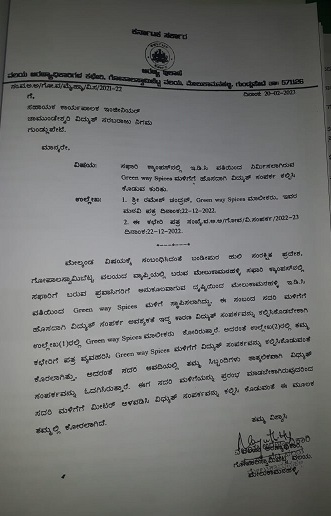 ಕರ್ನಾಟಕ ಸರ್ಕಾರ
ಅರಣ್ಯ ಇಲಾಖೆ
ವಲಯ ಅರಣ್ಯಾಧಿಕಾರಿಗಳ ಕಛೇರಿ, ಗೋಪಾಲಸ್ವಾಮಿಬೆಟ್ಟ ವಲಯ, ಮೇಲುಕಾಮನಹಳ್ಳಿ, ಗುಂಡ್ಲುಪೇಟೆ 571126
2021-22 ದಿನಾಂಕ: 20-02-2023
ಗೆ,
ಸಹಾಯಕ ಕಾರ್ಯಪಾಲಕ ಇಂಜಿನಿಯರ್
ಚಾಮುಂಡೇಶ್ವರಿ ವಿದ್ಯುತ್ ಸರಬರಾಜು ನಿಗಮ
ಗುಂಡ್ಲುಪೇಟೆ.
ಮಾನ್ಯರೇ,
ವಿಷಯ: ಸಫಾರಿ ಕ್ಯಾಂಪಸ್‌ನಲ್ಲಿ ಇ.ಡಿ.ಸಿ ವತಿಯಿಂದ ನಿರ್ಮಿಸಲಾಗಿರುವ
Green way Spices ಮಳಿಗೆಗೆ ಹೊಸದಾಗಿ ವಿದ್ಯುತ್ ಸಂಪರ್ಕ ಕಲ್ಪಿಸಿ
ಕೊಡುವ ಕುರಿತು.
ಉಲ್ಲೇಖ: 1. ಶ್ರೀ ರಮೇಶ್ ಚಂದ್ರನ್, Green way Spices ಮಾಲೀಕರು, ಇವರ
ಮನವಿ ಪತ್ರ ದಿನಾಂಕ:22-12-2022.
2. ಈ ಕಛೇರಿ ಪತ್ರ ಸಂಖ್ಯೆ:ವ.ಅ.ಅ/ಗೋವ/ವಿ.ಸಂಪರ್ಕ/2022-23
ದಿನಾಂಕ:22-12-2022.
ಮೇಲ್ಕಂಡ ವಿಷಯಕ್ಕೆ ಸಂಬಂಧಿಸಿದಂತೆ ಬಂಡೀಪುರ ಹುಲಿ ಸಂರಕ್ಷಿತ ಪ್ರದೇಶ,
ಗೋಪಾಲಸ್ವಾಮಿಬೆಟ್ಟ ವಲಯದ ವ್ಯಾಪ್ತಿಯಲ್ಲಿ ಬರುವ ಮೇಲುಕಾಮನಹಳ್ಳಿ ಸಫಾರಿ ಕ್ಯಾಂಪಸ್‌ನಲ್ಲಿ
ಸಫಾರಿಗೆ ಬರುವ ಪ್ರವಾಸಿಗರಿಗೆ ಅನುಕೂಲವಾಗುವ ದೃಷ್ಟಿಯಿಂದ ಮೇಲುಕಾಮನಹಳ್ಳಿ ಇ.ಡಿ.ಸಿ
ವತಿಯಿಂದ Green way Spices ಮಳಿಗೆ ಸ್ಥಾಪಿಸಲಾಗಿದ್ದು. ಈ ಸಂಬಂದ ಸದರಿ ಮಳಿಗೆಗೆ
ಹೊಸದಾಗಿ ವಿದ್ಯುತ್ ಸಂಪರ್ಕ ಅವಶ್ಯಕತೆ ಇದ್ದ ಕಾರಣ ವಿದ್ಯುತ್ ಸಂಪರ್ಕವನ್ನು ಕಲ್ಪಿಸಿಕೊಡಬೇಕಾಗಿ
ಉಲ್ಲೇಖ(1)ರಲ್ಲಿ Green way Spices ಮಾಲೀಕರು ಕೋರಿರುತ್ತಾರೆ. ಅದರಂತೆ ಉಲ್ಲೇಖ(2)ರಲ್ಲಿ ತಮ್ಮ
ಕಛೇರಿಗೆ ಪತ್ರ ವ್ಯವಹರಿಸಿ Green way Spices ಮಳಿಗೆಗೆ ವಿದ್ಯುತ್ ಸಂಪರ್ಕವನ್ನು ಕಲ್ಪಿಸಿಕೊಡುವಂತೆ
ಕೋರಲಾಗಿತ್ತು. ಅದರಂತೆ ಸದರಿ ಅವಧಿಯಲ್ಲಿ ತಮ್ಮ ಸಿಬ್ಬಂದಿಗಳು ತಾತ್ಕಲಿಕವಾಗಿ ವಿಧ್ಯುತ್
ಸಂಪರ್ಕವನ್ನು ಓದಗಿಸಿರುತ್ತಾರೆ. ಈಗ ಸದರಿ ಮಳಿಗೆಯನ್ನು ಪ್ರರಂಭ ಮಾಡಬೇಕಾಗಿರುವುದರಿಂದ
ಸದರಿ ಮಳಿಗೆಗೆ ಮೀಟರ್ ಅಳವಡಿಸಿ ವಿದ್ಯುತ್ ಸಂಪರ್ಕವನ್ನು ಕಲ್ಪಿಸಿ ಕೊಡುವಂತೆ ಈ ಮೂಲಕ
ತಮ್ಮಲ್ಲಿ ಕೋರಲಾಗಿದೆ.
ತಮ್ಮ ವಿಶ್ವಾಸಿ
ಗೋಪಾಲಸ್ವಾಮಿಬೆಟ್ಟ ವಲಯ,
ಮೇಲುಕಾಮನಹಳ್ಳಿ.